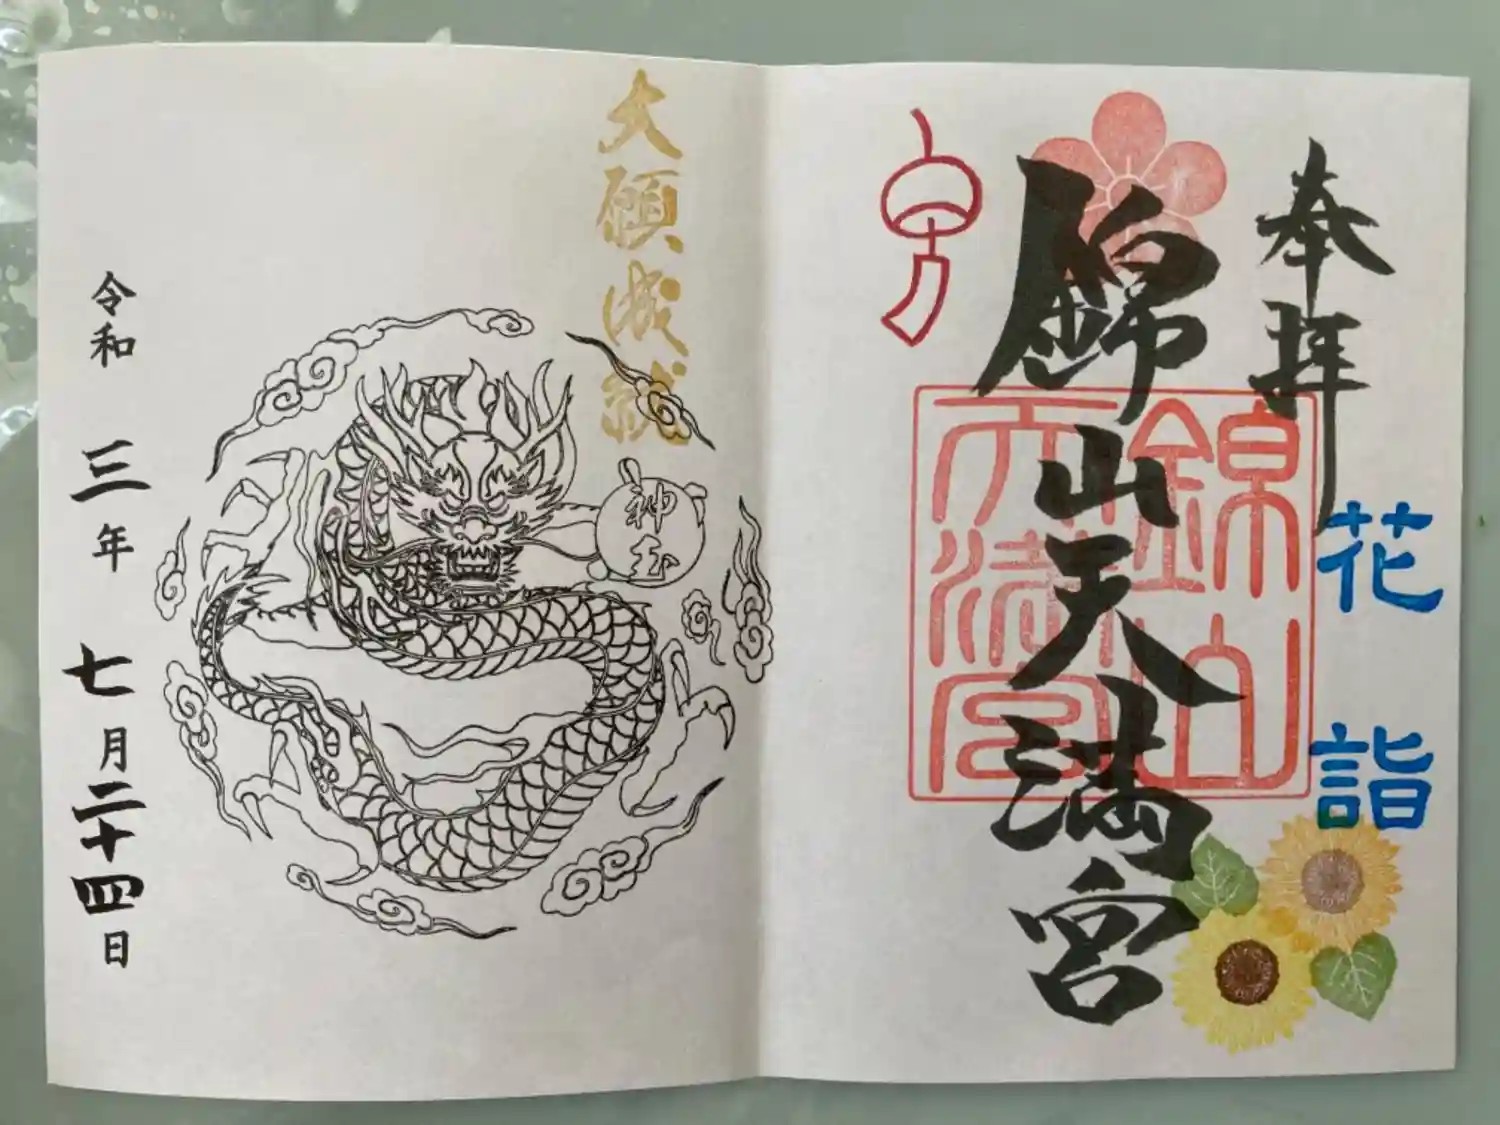 奉拝
錦山天満宮
錦山
天満宮
花詣
大願成就
神玉
令和三年七月二十四日